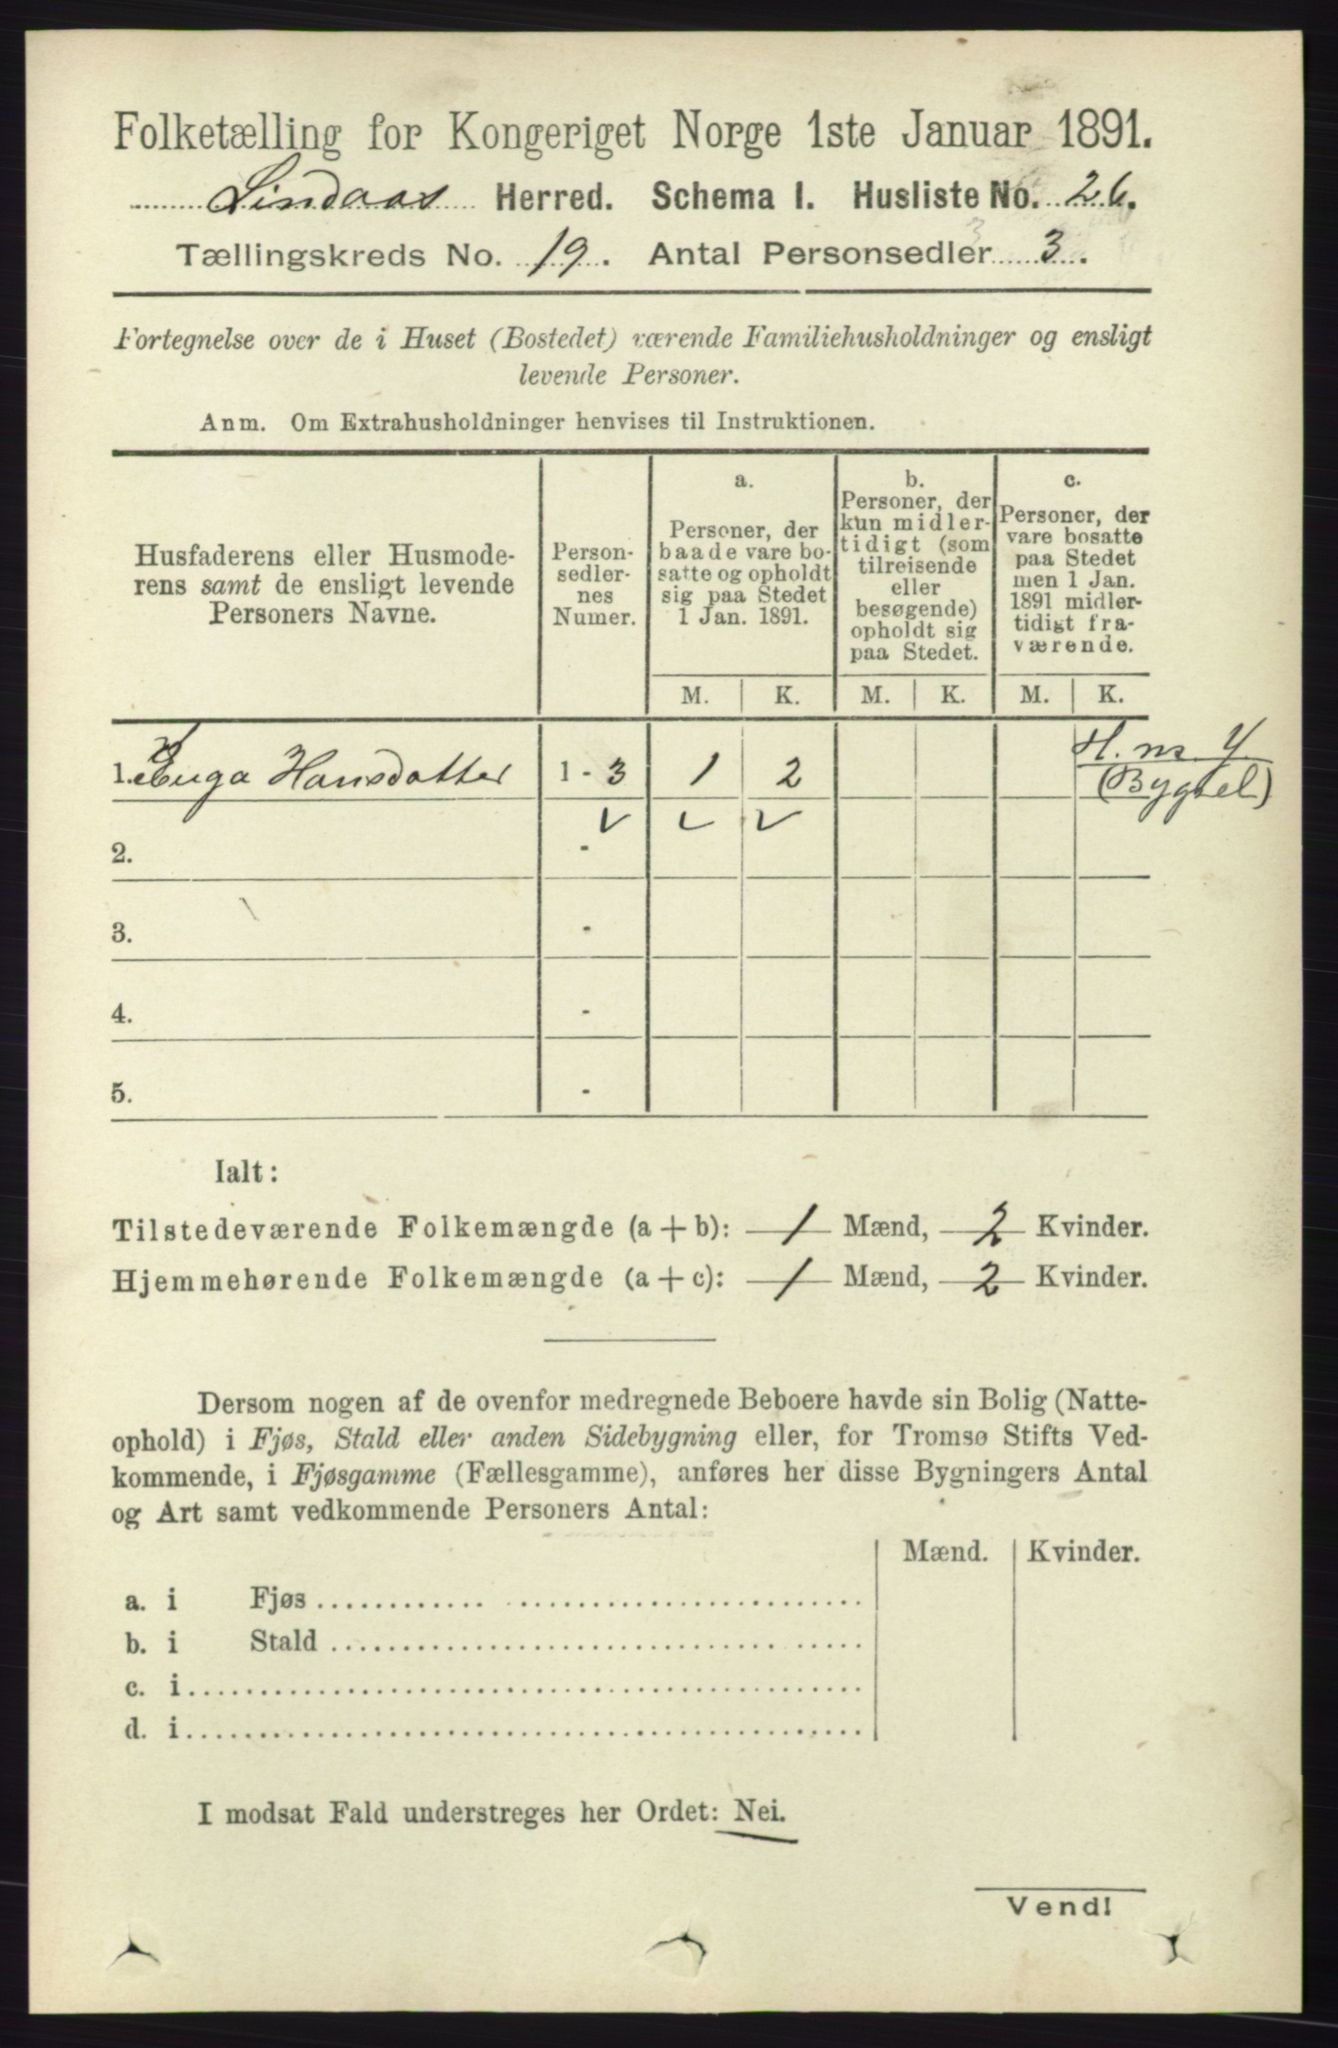 Folketælling for Kongeriget Norge 1ste Januar 1891.
Lindaas Herred. Schema I. Husliste No. 26.
Tællingskreds No. 19. Antal Personsedler 3.
Fortegnelse over de i Huset (Bostedet) værende Familiehusholdninger og ensligt
levende Personer.
Anm. Om Extrahusholdninger henvises til Instruktionen.
Husfaderens eller Husmode-
rens samt de ensligt levende
Personers Navne.
Person-
sedler-
nes
Numer.
a.
Personer, der
baade vare bo-
satte og opholdt
sig paa Stedet
1 Jan. 1891.
b.
Personer, der
kun midler-
tidigt (som
tilreisende
eller
besøgende)
opholdt sig
paa Stedet.
c.
Personer, der
vare bosatte
paa Stedet
men 1 Jan.
1891 midler-
tidigt fra-
værende.
M. K. M. K. M. K.
1. Hansdatter 1 - 3 1 2
(Bygsel)
2. -
3. -
4. -
5. -
Ialt:
Tilstedeværende Folkemængde (a + b): 1 Mænd, 2 Kvinder.
Hjemmehørende Folkemængde (a + c): 1 Mænd, 2 Kvinder.
Dersom nogen af de ovenfor medregnede Beboere havde sin Bolig (Natte-
ophold) i Fjøs, Stald eller anden Sidebygning eller, for Tromsø Stifts Ved-
kommende, i Fjøsgamme (Fællesgamme), anføres her disse Bygningers Antal
og Art samt vedkommende Personers Antal:
Mænd. Kvinder.
a. i Fjøs
b. i Stald
c. i
d. i
I modsat Fald understreges her Ordet: Nei.
Vend!